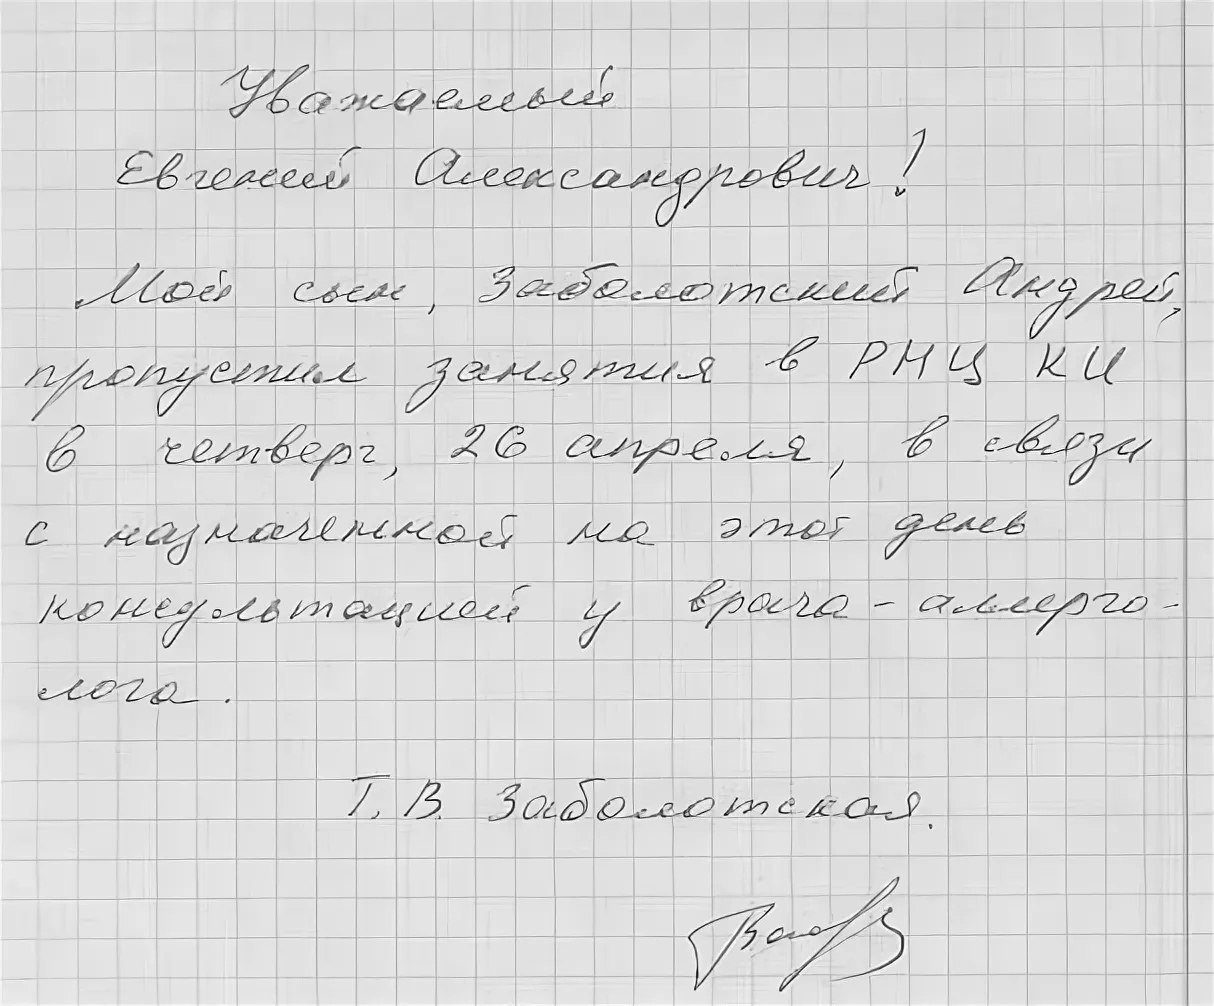 Уважаемый
Евгений Александрович!
Мой сын, Заболотский Андрей,
пропустил занятия в РМЦ КИ
в четверг, 26 апреля, в связи
с назначенной на этот день
консультацией у врача-аллерго-
лога.
Т.В. Заболотская.